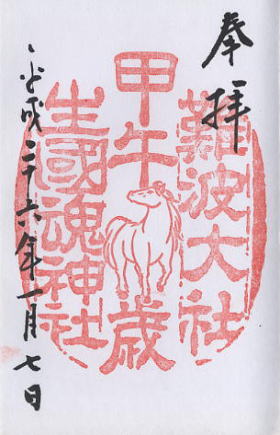 奉拝
難波大社
甲午歳
生國魂神社
平成二十六年一月七日